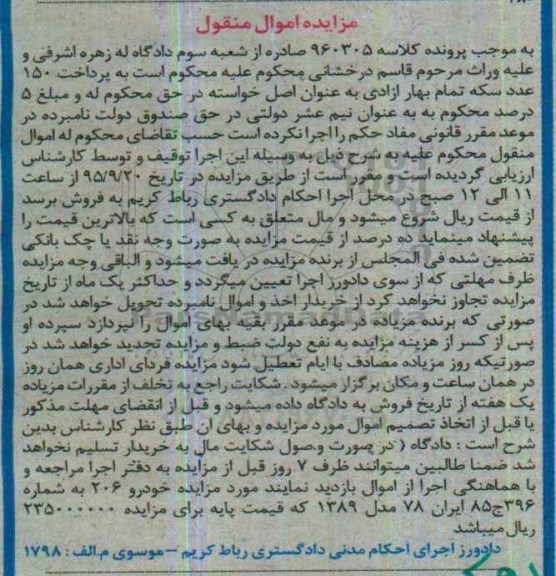 مزایده اموال منقول
به موجب پرونده کلاسه ۹۶۰۳۰۵ صادره از شعبه سوم دادگاه له زهره اشرفی و
علیه وراث مرحوم قاسم درخشانی محکوم علیه محکوم است به پرداخت ۱۵۰
عدد سکه تمام بهار ازادی به عنوان اصل خواسته در حق محکوم له و مبلغ ۵
درصد محکوم به به عنوان نیم عشر دولتی در حق صندوق دولت نامبرده در
موعد مقرر قانونی مفاد حکم را اجرا نکرده است حسب تقاضای محکوم له اموال
منقول محکوم علیه به شرح ذیل به وسیله این اجرا توقیف و توسط کارشناس
ارزیابی گردیده است و مقرر است از طریق مزایده در تاریخ ۹۵/۹/۲۰ از ساعت
۱۱ الی ۱۲ صبح در محل اجرا احکام دادگستری رباط کریم به فروش برسد
از قیمت ریال شروع میشود و مال متعلق به کسی است که بالاترین قیمت را
پیشنهاد مینماید ده درصد از قیمت مزایده به صورت وجه نقد یا چک بانکی
تضمین شده فی المجلس از برنده مزایده در یافت میشود و الباقی وجه مزایده
ظرف مهلتی که از سوی دادورز اجرا تعیین میگردد و حداکثر یک ماه از تاریخ
مزایده تجاوز نخواهد کرد از خریدار اخذ و اموال نامبرده تحویل خواهد شد در
صورتی که برنده مزیاده در موعد مقرر بقیه بهای اموال را نپردازد سپرده او
پس از کسر از هزینه مزایده به نفع دولت ضبط و مزایده تجدید خواهد شد در
صورتیکه روز مزیاده مصادف با ایام تعطیل شود مزایده فردای اداری همان روز
در همان ساعت و مکان برگزار میشود . شکایت راجع به تخلف از مقررات مزیاده
یک هفته از تاریخ فروش به دادگاه داده میشود و قبل از انقضای مهلت مذکور
یا قبل از اتخاذ تصمیم اموال مورد مزایده و بهای ان طبق نظر کارشناس بدین
شرح است : دادگاه ( در صورت وصول شکایت مال به خریدار تسلیم نخواهد
شد ضمنا طالبین میتوانند ظرف ۷ روز قبل از مزایده به دفتر اجرا مراجعه و
با هماهنگی اجرا از اموال بازدید نمایند مورد مزایده خودرو ۲۰۶ به شماره
۳۹۶ج۸۵ ایران ۷۸ مدل ۱۳۸۹ که قیمت پایه برای مزایده ۲۳۵۰۰۰۰۰۰
ریال میباشد
دادورز اجرای احکام مدنی دادگستری رباط کریم – موسوی م.الف : ۱۷۹۸